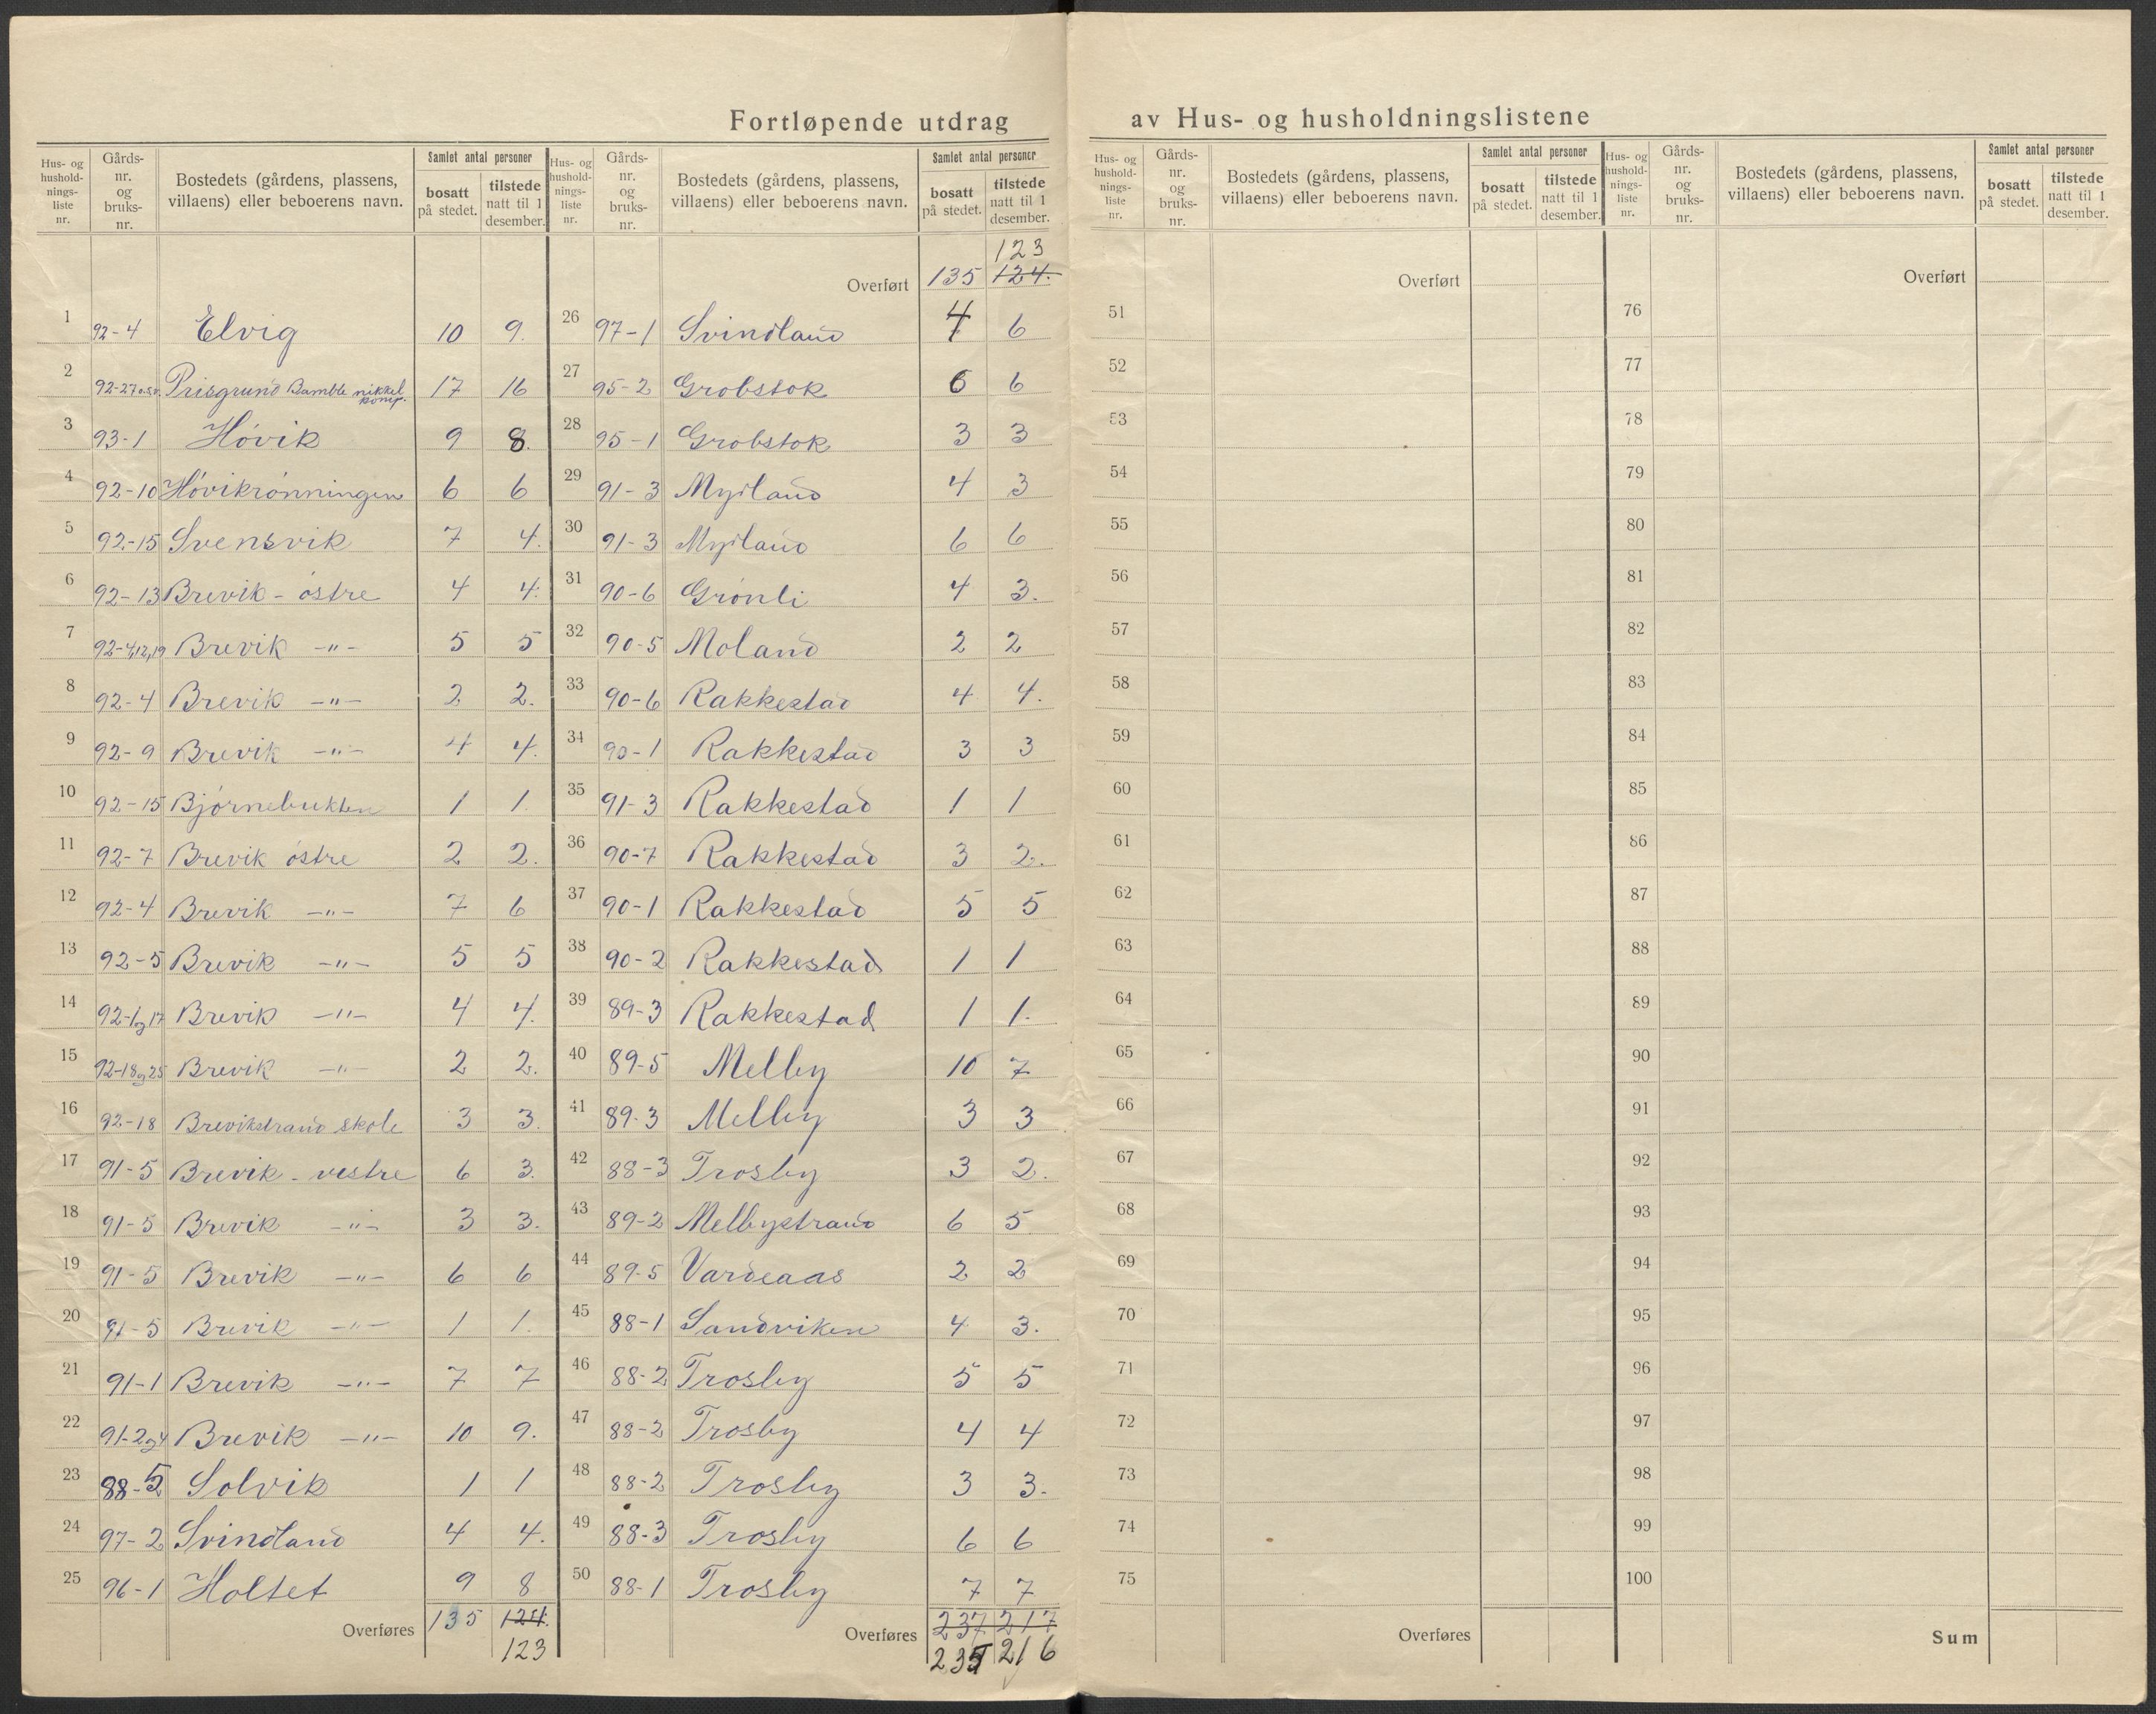 Fortløpende utdrag av Hus- og husholdningslistene
Hus- og hushold-nings-liste nr. | Gårds-nr. og bruks-nr. | Bostedets (gårdens, plassens, villaens) eller beboerens navn. | Samlet antal personer | bosatt på stedet. | tilstede natt til 1 desember.
1 92-4 Elvig 10 9.
2 92-27 o.s.v. Prisgrund Bamble nikkel komp. 17 16
3 93-1 Hóvik 9 8.
4 92-10 Hóvikrónningen 6 6
5 92-15 Svensvik 7 4.
6 92-13 Brevik - óstre 4 4.
7 92-4,12,19 Brevik -"- 5 5
8 92-4 Brevik -"- 2 2.
9 92-9 Brevik -"- 4 4.
10 92-15 Bjórnebukten 1 1.
11 92-7 Brevik óstre 2 2.
12 92-4 Brevik -"- 7 6
13 92-5 Brevik -"- 5 5
14 92-1og17 Brevik -"- 4 4.
15 92-18og25 Brevik -"- 2 2.
16 92-18 Brevikstrand skole 3 3.
17 91-5 Brevik - vestre 6 3.
18 91-5 Brevik -"- 3 3.
19 91-5 Brevik -"- 6 6
20 91-5 Brevik -"- 1 1.
21 91-1 Brevik -"- 7 7
22 91-2og4 Brevik -"- 10 9.
23 88-5 Solvik 1 1
24 97-2 Svindland 4 4.
25 96-1 Holtet 9 8
Overføres 135 124.
123
Hus- og hushold-nings-liste nr. | Gårds-nr. og bruks-nr. | Bostedets (gårdens, plassens, villaens) eller beboerens navn. | Samlet antal personer | bosatt på stedet. | tilstede natt til 1 desember.
123
Overført 135 124.
26 97-1 Svindland 4 6
27 95-2 Grobstok 6 6
28 95-1 Grobstok 3 3
29 91-3 Myrland 4 3
30 91-3 Myrland 6 6
31 90-6 Grónli 4 3.
32 90-5 Moland 2 2
33 90-6 Rakkestad 4 4.
34 90-1 Rakkestad 3 3
35 91-3 Rakkestad 1 1
36 90-7 Rakkestad 3 2.
37 90-1 Rakkestad 5 5
38 90-2 Rakkestad 1 1
39 89-3 Rakkestad 1 1.
40 89-5 Melby 10 7
41 89-3 Melby 3 3
42 88-3 Trosby 3 2.
43 89-2 Melbystrand 6 5
44 89-5 Vardeaas 2 2
45 88-1 Sandviken 4 3.
46 88-2 Trosby 5 5
47 88-2 Trosby 4 4
48 88-2 Trosby 3 3.
49 88-3 Trosby 6 6
50 88-1 Trosby 7 7
Overføres 237 217
235 216
Hus- og hushold-nings-liste nr. | Gårds-nr. og bruks-nr. | Bostedets (gårdens, plassens, villaens) eller beboerens navn. | Samlet antal personer | bosatt på stedet. | tilstede natt til 1 desember.
Overført
51
52
53
54
55
56
57
58
59
60
61
62
63
64
65
66
67
68
69
70
71
72
73
74
75
Overføres
Hus- og hushold-nings-liste nr. | Gårds-nr. og bruks-nr. | Bostedets (gårdens, plassens, villaens) eller beboerens navn. | Samlet antal personer | bosatt på stedet. | tilstede natt til 1 desember.
Overført
76
77
78
79
80
81
82
83
84
85
86
87
88
89
90
91
92
93
94
95
96
97
98
99
100
Sum